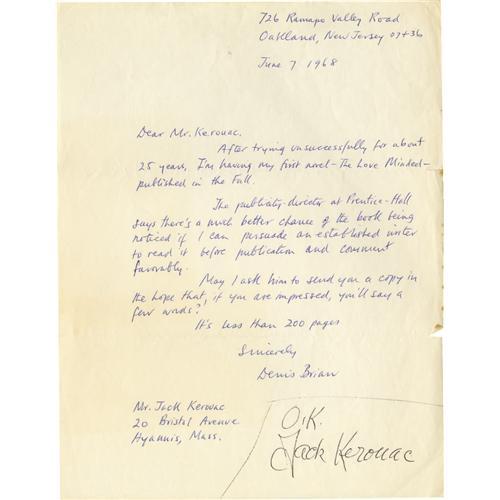 726 Ramapo Valley Road
Oakland, New Jersey 07436
June 7 1968
Dear Mr. Kerouac.
After trying unsuccessfully for about
25 years, I'm having my first novel - The Love Minded -
published in the Fall.
The publicity-director at Prentice-Hall
says there's a much better chance of the book being
noticed if I can persuade an established writer
to read it before publication and comment
favorably.
May I ask him to send you a copy in
the hope that, if you are impressed, you'll say a
few words?
It's less than 200 pages
Sincerely
Denis Brian
Mr. Jack Kerouac
20 Bristol Avenue
Hyannis, Mass.
O.K.
Jack Kerouac